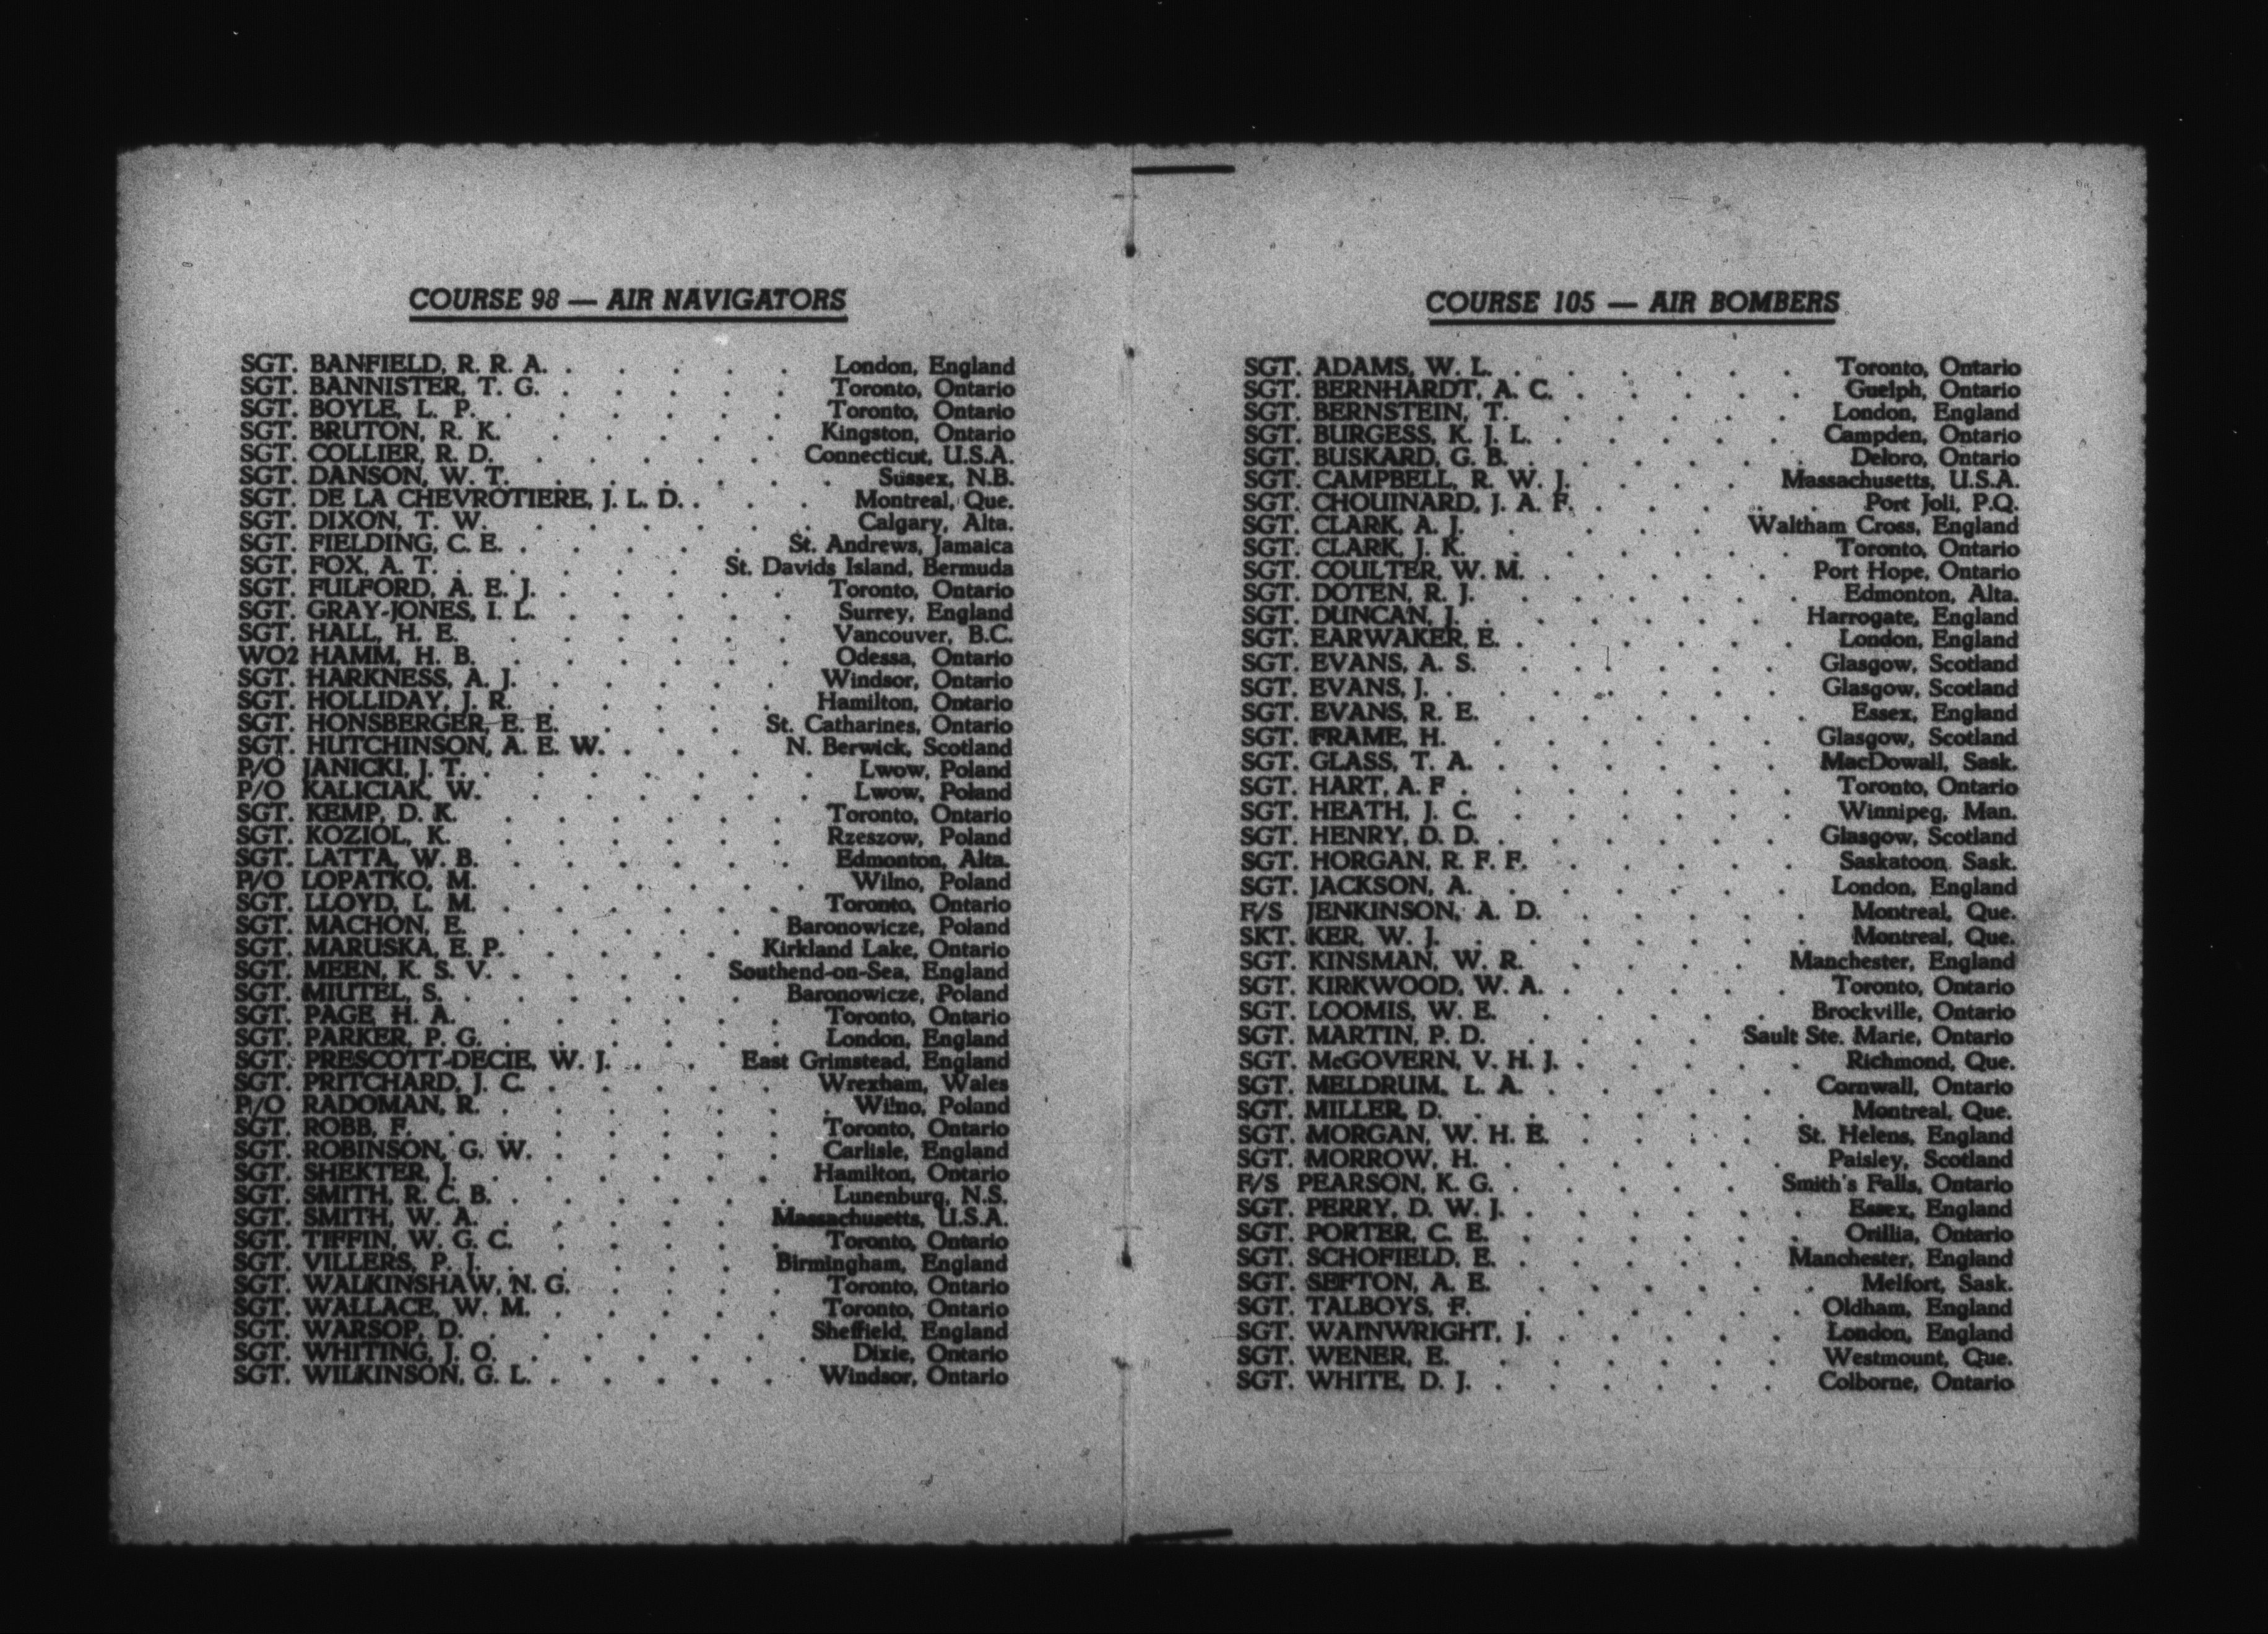 COURSE 98 — AIR NAVIGATORS
SGT. BANFIELD, R. R. A. . . . . . London, England
SGT. BANNISTER, T. G. . . . . . Toronto, Ontario
SGT. BOYLE, L. P. . . . . . . Toronto, Ontario
SGT. BRUTON, R. K. . . . . . Kingston, Ontario
SGT. COLLIER, R. D. . . . . . Connecticut, U.S.A.
SGT. DANSON, W. T. . . . . . . Sussex, N.B.
SGT. DE LA CHEVROTIERE, J. L. D. . . . Montreal, Que.
SGT. DIXON, T. W. . . . . . . Calgary, Alta.
SGT. FIELDING, C. E. . . . . . St. Andrews, Jamaica
SGT. FOX, A. T. . . . . . St. Davids Island, Bermuda
SGT. FULFORD, A. E. J. . . . . . Toronto, Ontario
SGT. GRAY-JONES, I. L. . . . . . Surrey, England
SGT. HALL, H. E. . . . . . . Vancouver, B.C.
WO2 HAMM, H. B. . . . . . . Odessa, Ontario
SGT. HARKNESS, A. J. . . . . . Windsor, Ontario
SGT. HOLLIDAY, J. R. . . . . . Hamilton, Ontario
SGT. HONSBERGER, E. E. . . . St. Catharines, Ontario
SGT. HUTCHINSON, A. E. W. . . . N. Berwick, Scotland
P/O JANICKI, J. T. . . . . . . . Lwow, Poland
P/O KALICIAK, W. . . . . . . Lwow, Poland
SGT. KEMP, D. K. . . . . . . Toronto, Ontario
SGT. KOZIOL, K. . . . . . . Rzeszow, Poland
SGT. LATTA, W. B. . . . . . . Edmonton, Alta.
P/O LOPATKO, M. . . . . . . Wilno, Poland
SGT. LLOYD, L. M. . . . . . . Toronto, Ontario
SGT. MACHON, E. . . . . . Baronowicze, Poland
SGT. MARUSKA, E. P. . . . . Kirkland Lake, Ontario
SGT. MEEN, K. S. V. . . . . Southend-on-Sea, England
SGT. MIUTEL, S. . . . . . . Baronowicze, Poland
SGT. PAGE H. A. . . . . . . Toronto, Ontario
SGT. PARKER, P. G. . . . . . . London, England
SGT. PRESCOTT-DECIE, W. J. . . East Grimstead, England
SGT. PRITCHARD, J. C. . . . . . Wrexham, Wales
P/O RADOMAN, R. . . . . . . . Wilno, Poland
SGT. ROBB, F. . . . . . . . Toronto, Ontario
SGT. ROBINSON, G. W. . . . . . Carlisle, England
SGT. SHEKTER, J. . . . . . . Hamilton, Ontario
SGT. SMITH, R. C. B. . . . . . . Lunenburg, N.S.
SGT. SMITH, W. A. . . . . . Massachusetts, U.S.A.
SGT. TIFFIN, W. G. C. . . . . . Toronto, Ontario
SGT. VILLERS, P. J. . . . . . Birmingham, England
SGT. WALKINSHAW, N. G. . . . . Toronto, Ontario
SGT. WALLACE, W. M. . . . . . Toronto, Ontario
SGT. WARSOP, D. . . . . . . Sheffield, England
SGT. WHITING, J. O. . . . . . . Dixie, Ontario
SGT. WILKINSON, G. L. . . . . . Windsor, Ontario
COURSE 105 — AIR BOMBERS
SGT. ADAMS, W. L. . . . . . . Toronto, Ontario
SGT. BERNHARDT, A. C. . . . . . Guelph, Ontario
SGT. BERNSTEIN, T. . . . . . . London, England
SGT. BURGESS, K. J. L. . . . . . Campden, Ontario
SGT. BUSKARD, G. B. . . . . . . Deloro, Ontario
SGT. CAMPBELL, R. W. J. . . . Massachusetts, U.S.A.
SGT. CHOUINARD, J. A. F. . . . . . Port Joli, P.Q.
SGT. CLARK, A. J. . . . . Waltham Cross, England
SGT. CLARK, J. K. . . . . . . Toronto, Ontario
SGT. COULTER, W. M. . . . . . Port Hope, Ontario
SGT. DOTEN, R. J. . . . . . . Edmonton, Alta.
SGT. DUNCAN, J. . . . . . . Harrogate, England
SGT. EARWAKER, E. . . . . . . London, England
SGT. EVANS, A. S. . . . . . Glasgow, Scotland
SGT. EVANS, J. . . . . . . . Glasgow, Scotland
SGT. EVANS, R. E. . . . . . . Essex, England
SGT. FRAME, H. . . . . . . Glasgow, Scotland
SGT. GLASS, T. A. . . . . . . MacDowall, Sask.
SGT. HART, A. F . . . . . . . Toronto, Ontario
SGT. HEATH, J. C. . . . . . . Winnipeg, Man.
SGT. HENRY, D. D. . . . . . . Glasgow, Scotland
SGT. HORGAN, R. F. F. . . . . . Saskatoon Sask.
SGT. JACKSON, A. . . . . . . London, England
F/S JENKINSON, A. D. . . . . . Montreal, Que.
SKT. KER, W. J. . . . . . . . Montreal, Que.
SGT. KINSMAN, W. R. . . . . Manchester, England
SGT. KIRKWOOD, W. A. . . . . . Toronto, Ontario
SGT. LOOMIS, W. E. . . . . . Brockville, Ontario
SGT. MARTIN, P. D. . . . . Sault Ste. Marie, Ontario
SGT. McGOVERN, V. H. J. . . . . Richmond, Que.
SGT. MELDRUM, L. A. . . . . . Cornwall, Ontario
SGT. MILLER, D. . . . . . . . Montreal, Que.
SGT. MORGAN, W. H. E. . . . . St. Helens, England
SGT. MORROW, H. . . . . . . Paisley, Scotland
F/S PEARSON, K. G. . . . . . Smith's Falls, Ontario
SGT. PERRY, D. W. J. . . . . . . Essex, England
SGT. PORTER, C. E. . . . . . . Orillia, Ontario
SGT. SCHOFIELD, E. . . . . . Manchester, England
SGT. SEFTON, A. E. . . . . . . Melfort, Sask.
SGT. TALBOYS, F. . . . . . . Oldham, England
SGT. WAINWRIGHT, J. . . . . . London, England
SGT. WENER, E. . . . . . . Westmount, Que.
SGT. WHITE, D. J. . . . . . . Colborne, Ontario